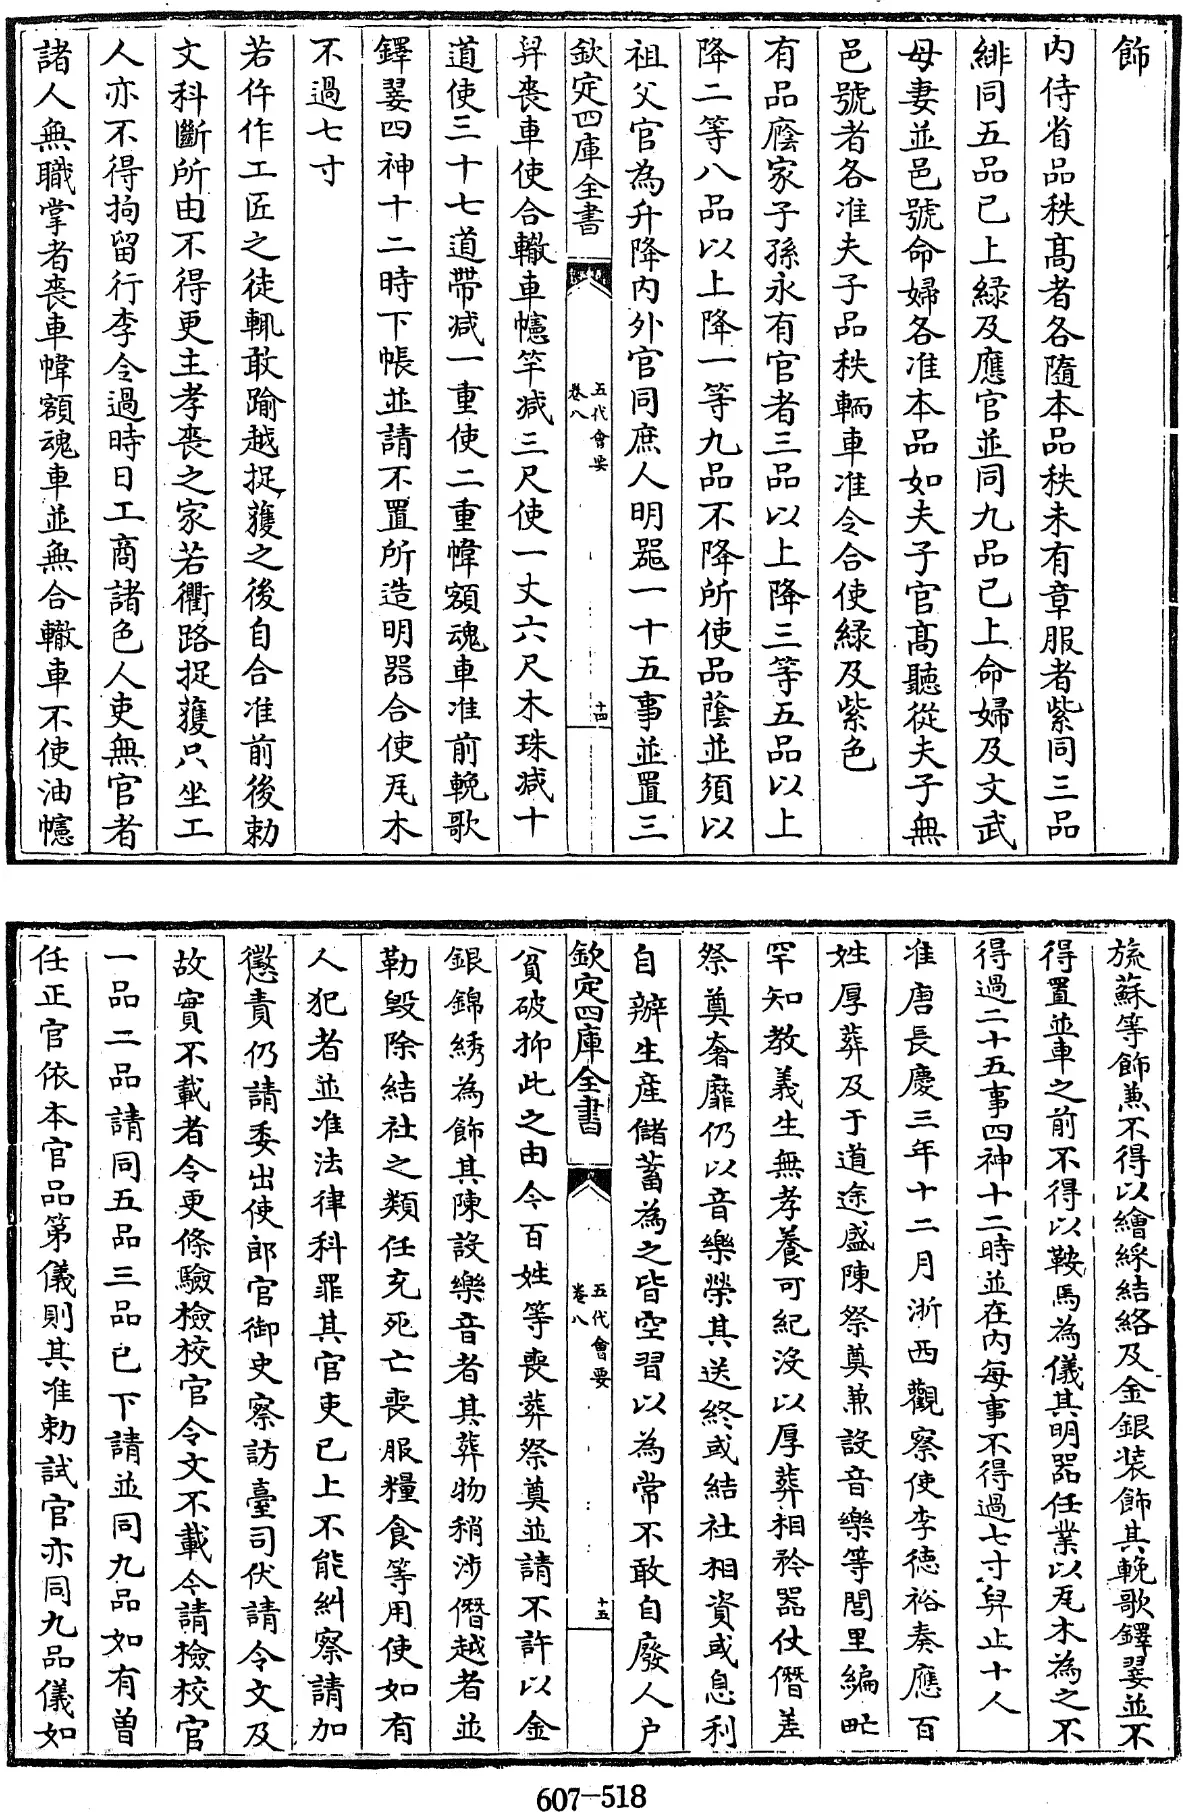 飾
内侍省品秩髙者各隨本品秩未有章服者紫同三品
緋同五品已上緑及應官並同九品已上命婦及文武
母妻並邑號命婦各准本品如夫子官髙聽從夫子無
邑號者各准夫子品秩輛車准令合使緑及紫色
有品廕家子孫永有官者三品以上降三等五品以上
降二等八品以上降一等九品不降所使品蔭並須以
祖父官為升降内外官同庶人明噐一十五事並置三
欽定四庫全書
五代會要
卷八
十四
舁喪車使合轍車幰竿减三尺使一丈六尺木珠减十
道使三十七道帶减一重使二重幃額魂車准前輓歌
鐸翣四神十二時下帳並請不置所造明器合使瓦木
不過七寸
若仵作工匠之徒輒敢踰越捉獲之後自合准前後勅
文科斷所由不得更主孝喪之家若衢路捉獲只坐工
人亦不得拘留行李令過時日工商諸色人吏無官者
諸人無職掌者喪車幃額魂車並無合轍車不使油幰
旒蘇等飾兼不得以繪綵結絡及金銀装飾其輓歌鐸翣並不
得置並車之前不得以鞍馬為儀其明噐任業以瓦木為之不
得過二十五事四神十二時並在内每事不得過七寸舁止十人
准唐長慶三年十二月浙西觀察使李徳裕奏應百
姓厚葬及于道途盛陳祭奠兼設音樂等閭里編甿
罕知教義生無孝養可紀没以厚葬相矜器仗僭差
祭奠奢靡仍以音樂榮其送終或結社相資或息利
自辦生産儲蓄為之皆空習以為常不敢自廢人户
欽定四庫全書
五代會要
卷八
十五
貧破抑此之由今百姓等喪葬祭奠並請不許以金
銀錦綉為飾其陳設樂音者其葬物稍涉僭越者並
勒毁除結社之類任充死亡喪服糧食等用使如有
人犯者並准法律科罪其官吏已上不能糾察請加
懲責仍請委出使郎官御史察訪臺司伏請令文及
故實不載者令更條驗檢校官令文不載今請檢校官
一品二品請同五品三品已下請並同九品如有曽
任正官依本官品第儀則其准勅試官亦同九品儀如
607-518